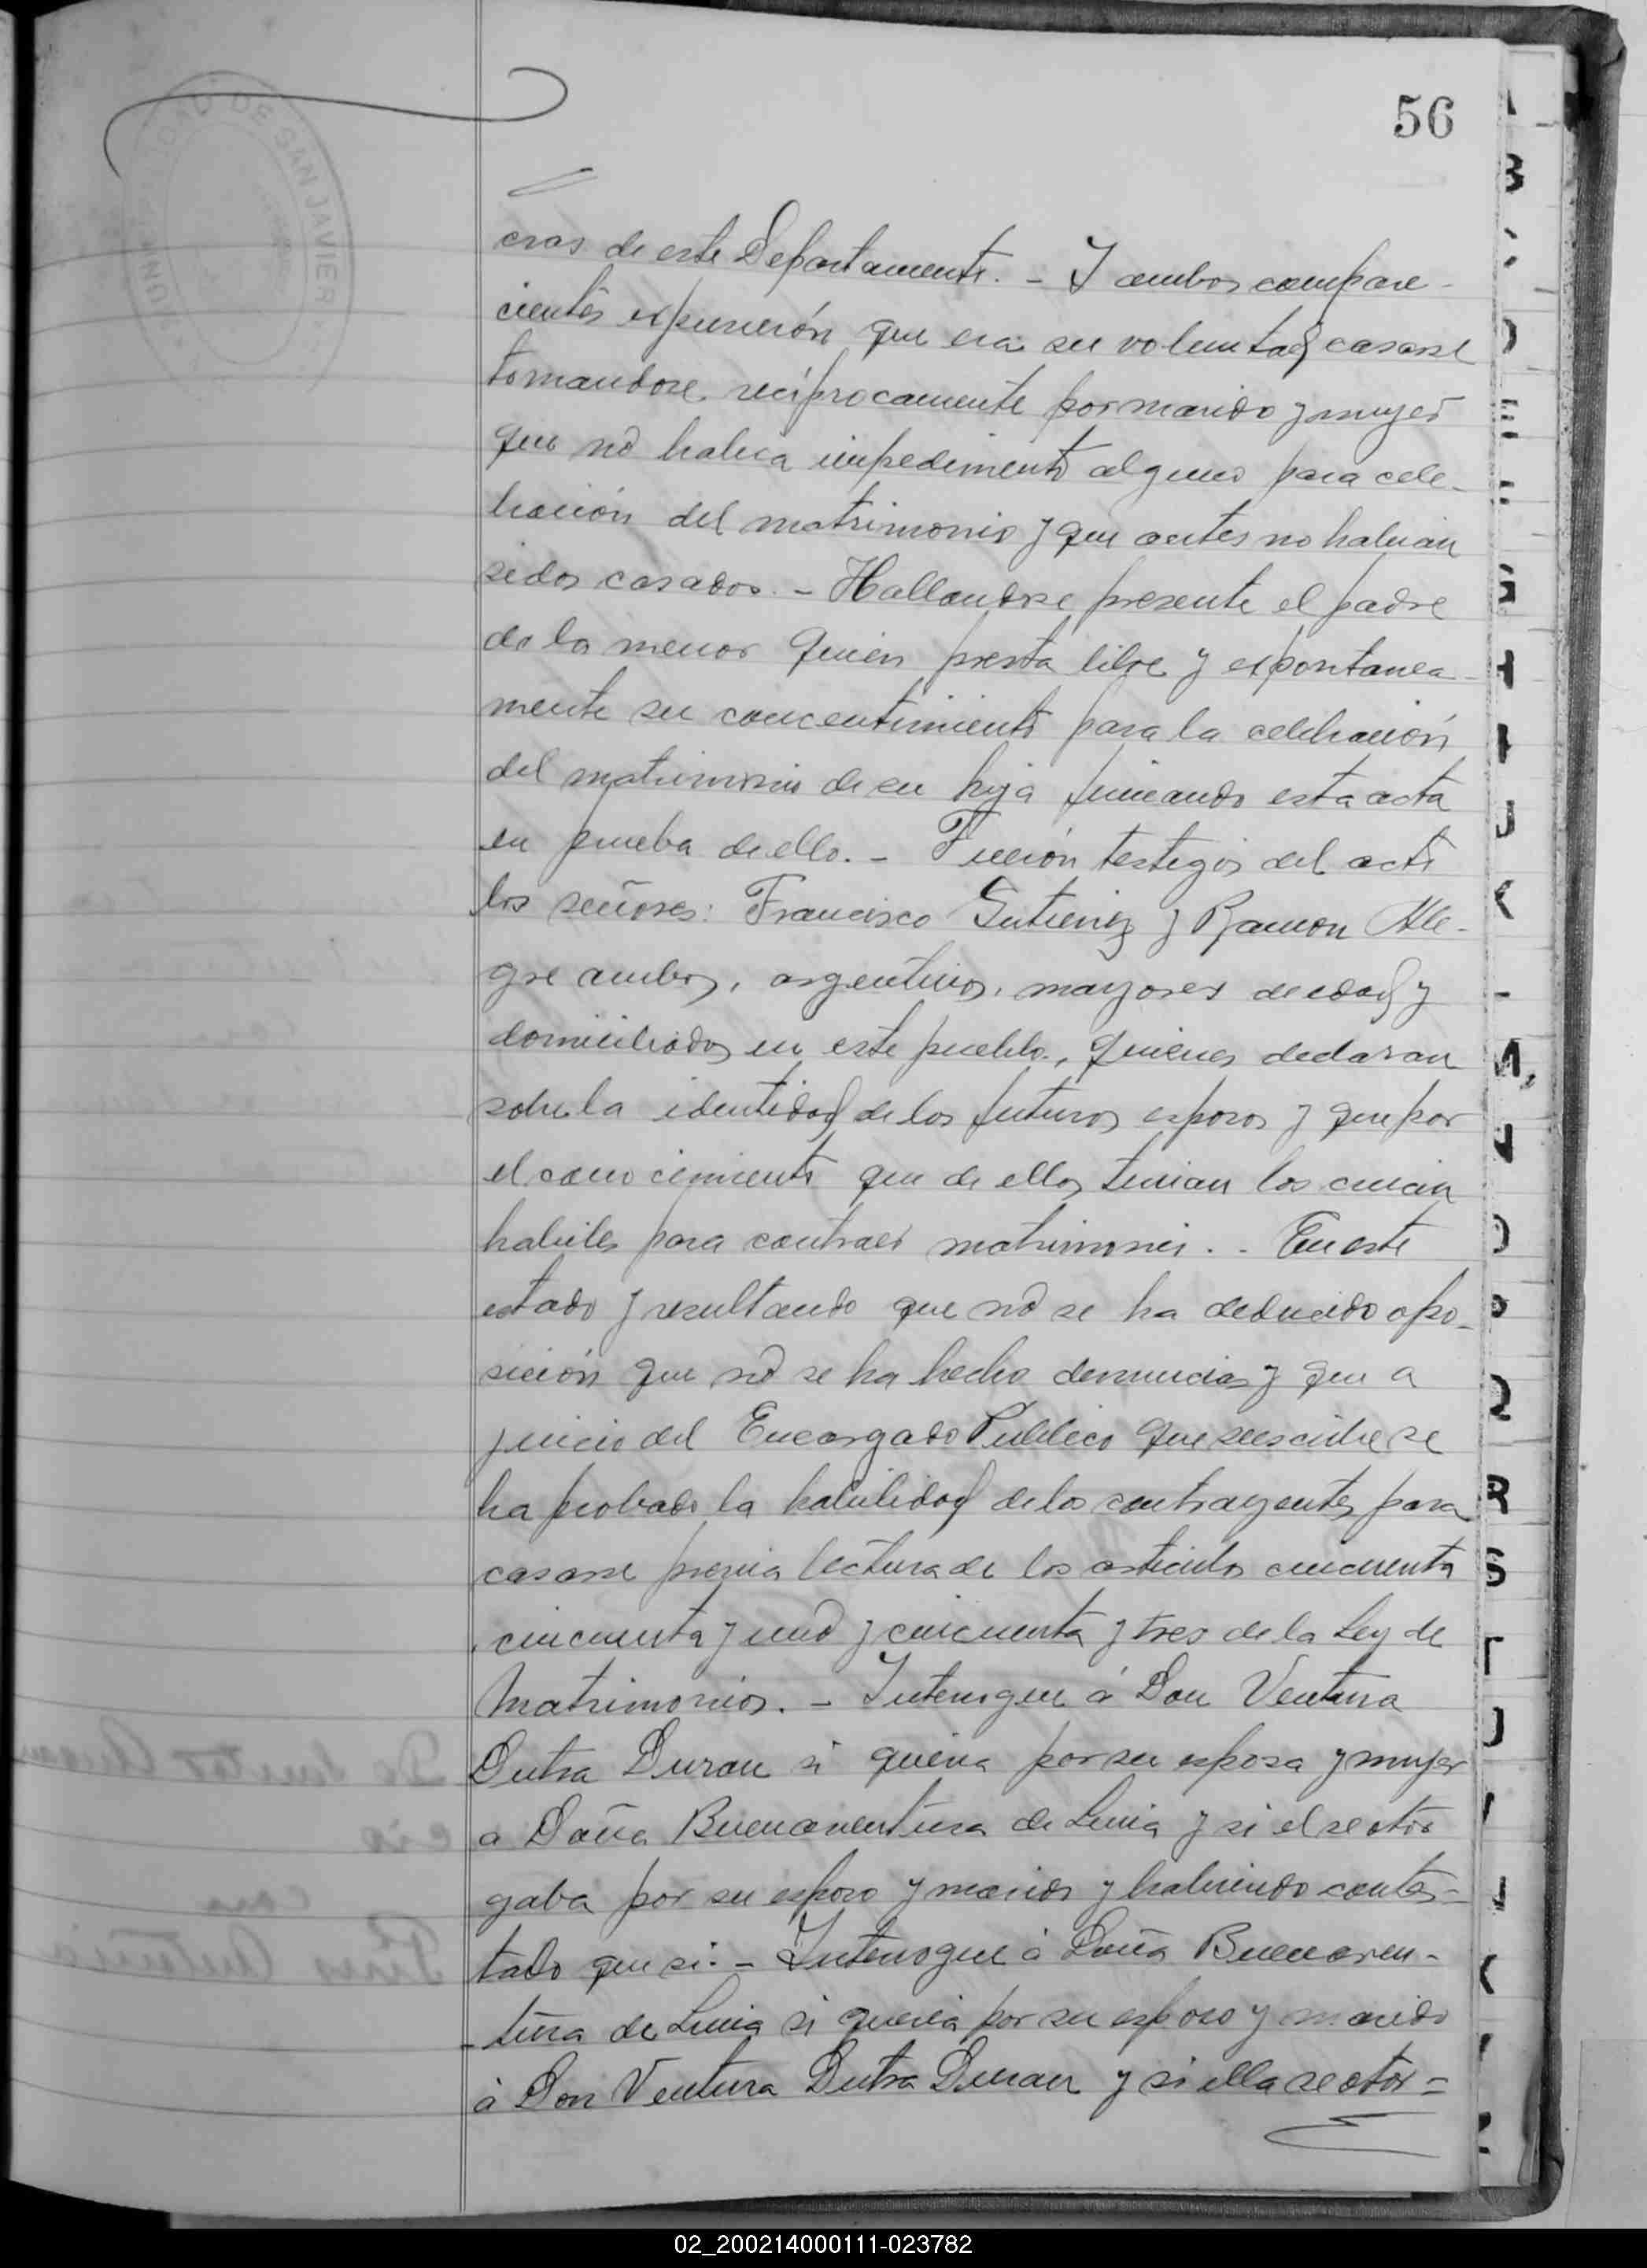 56
DE SAN JAVIER
cras de este Departamento. - Y ambos compare-
cientes expusierón que era su voluntad casarse
tomandose recíprocamente por marido y mujer
que nó habia impedimento alguno para cele-
bración del matrimonio y que antes no habian
sidos casados. - Hallandose presente el padre
de la menor quien presta libre y espontanea-
mente su concentimiento para la celebración
del matrimonio de su hija firmando esta acta
en prueba de ello. - Fuerón testigos del acto
los señores: Francisco Gutierrez y Ramon Ale-
gre ambos, argentinos, mayores de edad y
domiciliados en este pueblo, quienes declaran
sobre la identidad de los futuros esposos y que por
el conocimiento que de ellos tenian los creian
habiles para contraer matrimonio. - En este
estado y resultando que nó se ha deducido opo-
sición que nó se ha hecho denuncias y que a
juicio del Encargado Publico que suscribe se
ha probado la habilidad de los contrayentes para
casarse previa lectura de los articulos cincuenta
cincuenta y unó y cincuenta y tres de la Ley de
Matrimonios. - Interrogue á Don Ventura
Dutra Duran si queria por su esposa y mujer
a Doña Buenaventura de Lima y si el se otor
gaba por su esposo y marido y habiendo contes-
tado que si. - Interrogue á Doña Buenaven-
tura de Lima si queria por su esposo y marido
á Don Ventura Dutra Duran y si ella se otor=
02_200214000111-023782